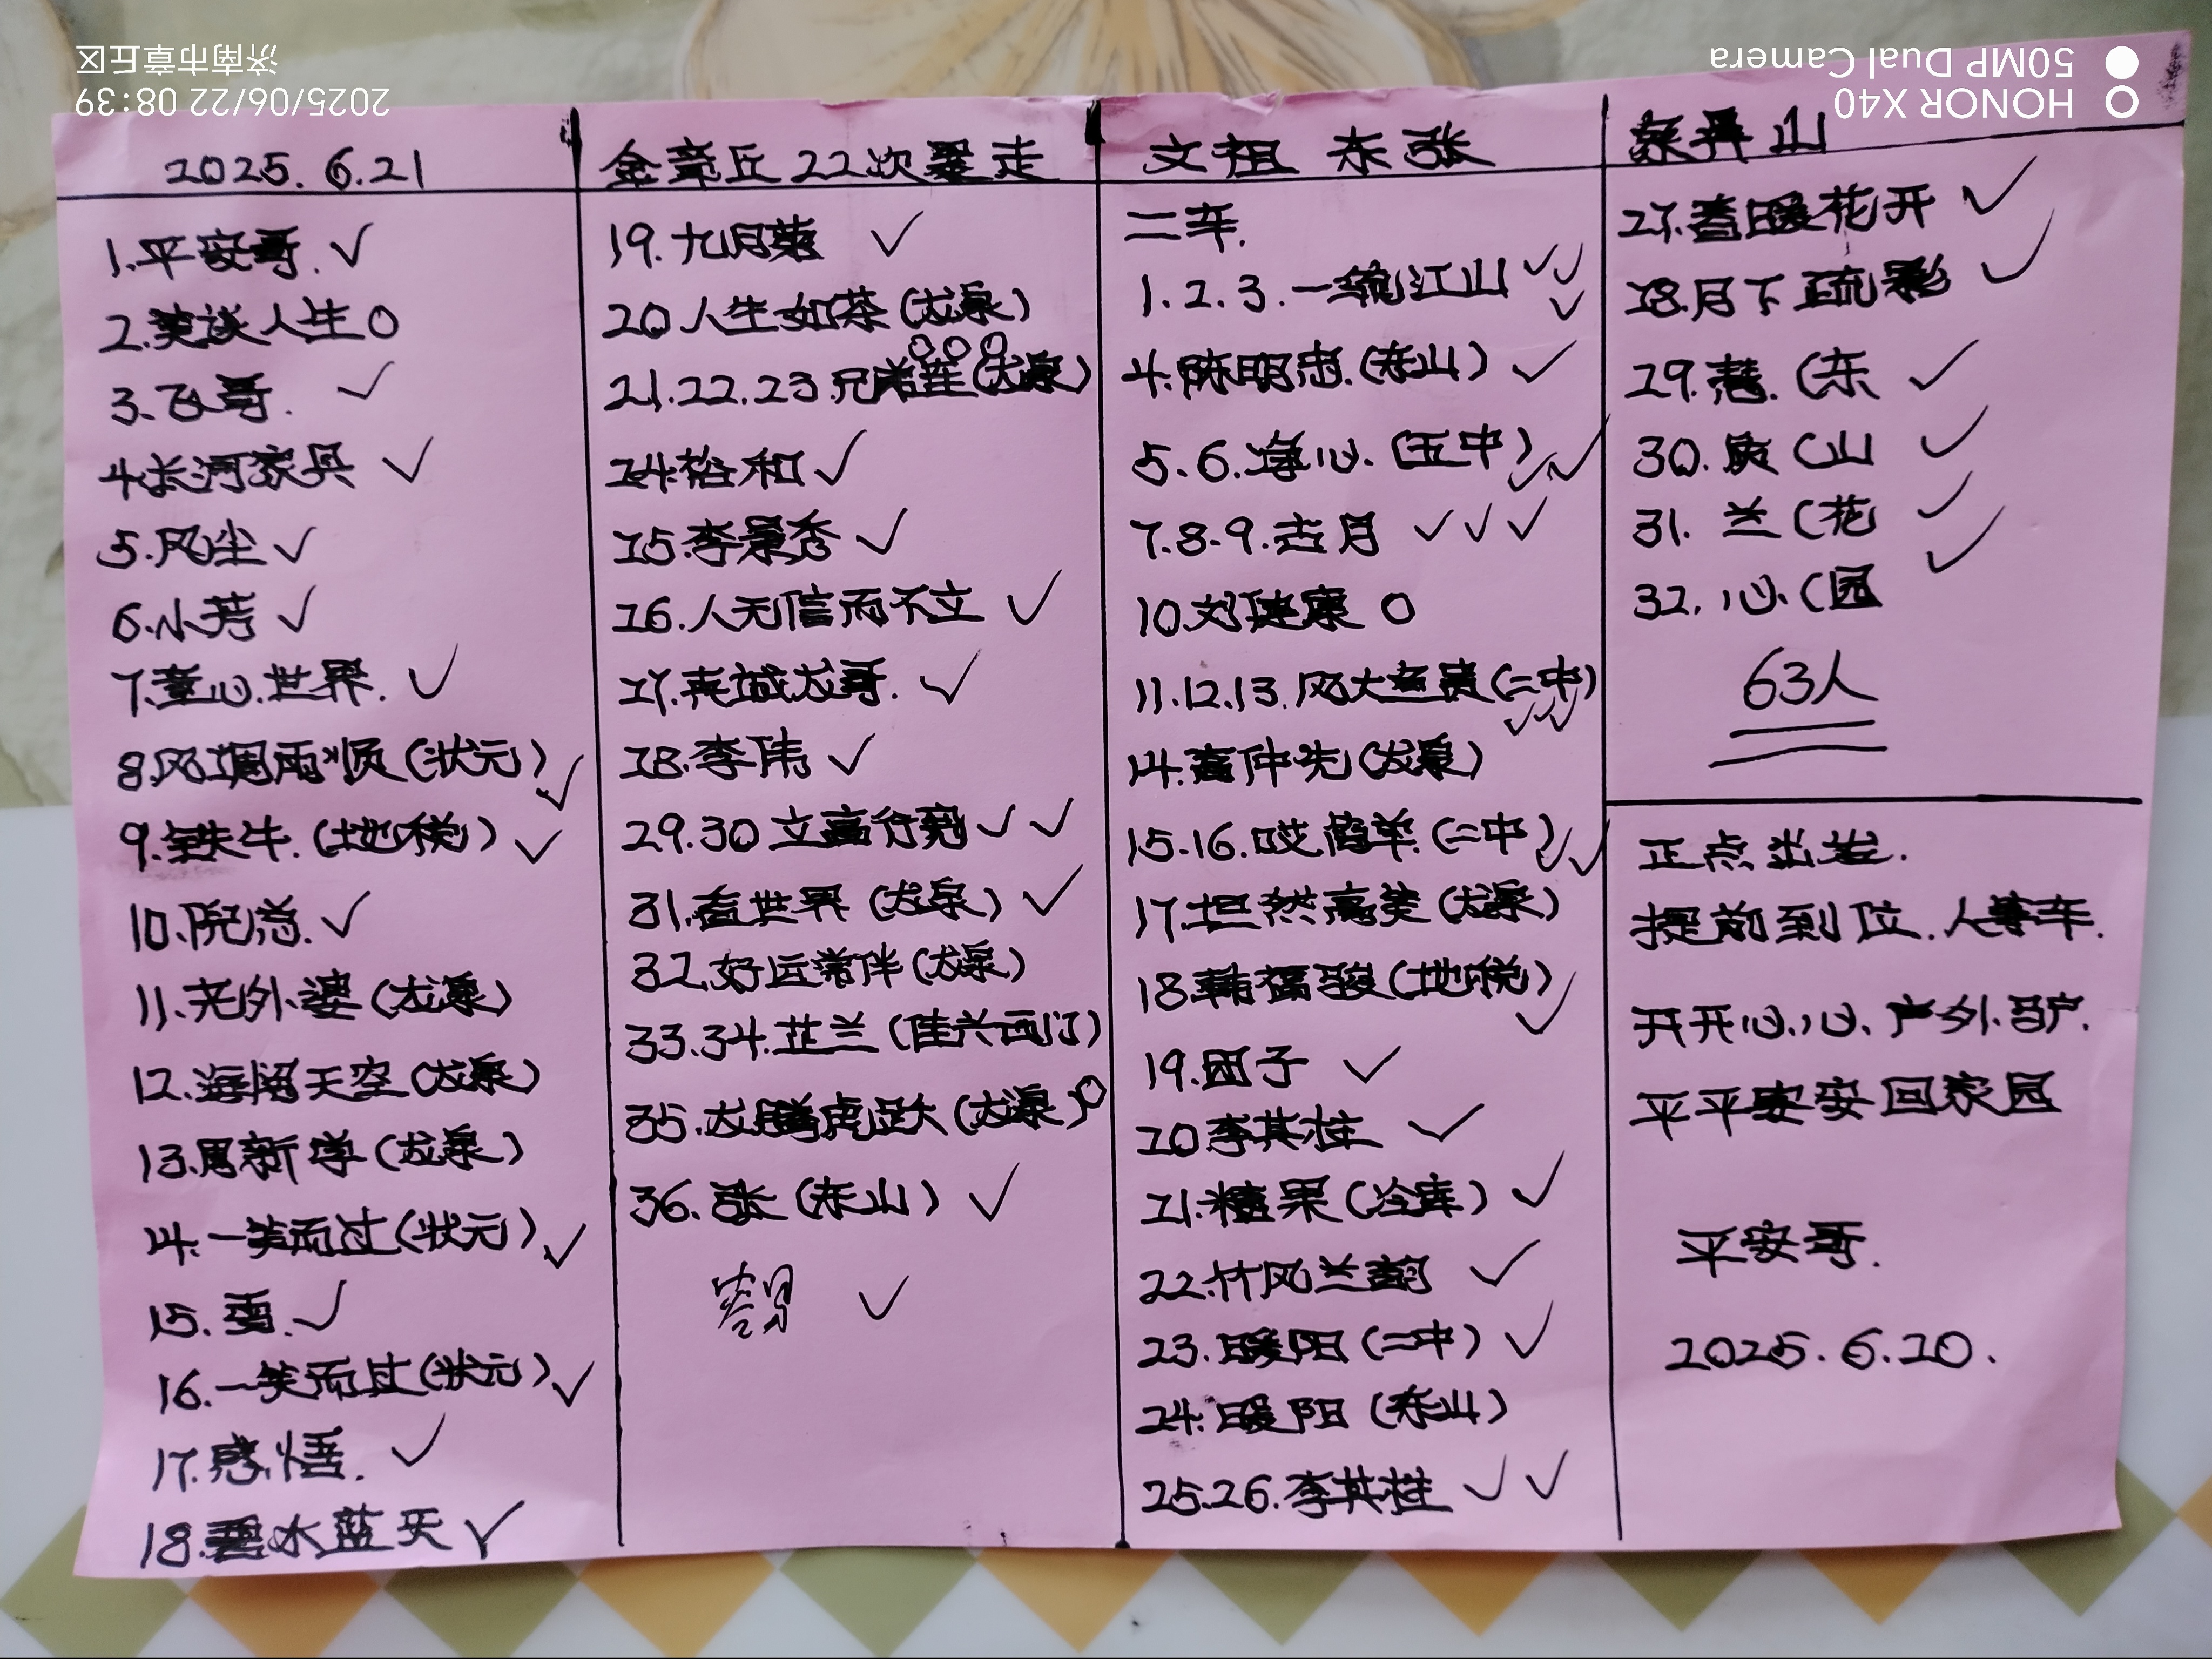 济南市章丘区
2025/06/22 08:39
HONOR X40
50MP Dual Camera
2025.6.21
金章丘22次暴走
文祖 东张
山
1.平安哥.✓
2.笑谈人生○
3.飞哥.✓
4.长河家具✓
5.风尘✓
6.小芳✓
7.童心.世界.✓
8.风调雨顺(状元)✓
9.铁牛.(地税)✓
10.院总.✓
11.老外婆(龙泉)
12.海阔天空(龙泉)
13.周新学(龙泉)
14.一笑而过(状元)✓
15.雪.✓
16.一笑而过(状元)✓
17.感悟.✓
18.碧水蓝天✓
19.九月菊✓
20人生如茶(龙泉)
○○○
21.22.23.兄(龙泉)
24.裕和✓
25.李景秀✓
26.人无信而不立✓
27.龙哥.✓
28.李伟✓
29.30立高行宽✓✓
31.看世界(龙泉)✓
32.好运常伴(龙泉)
33.34.芷兰(佳兴西门)
35.龙腾虎跃(龙泉)○
36.张(东山)✓
✓
二车.
1.2.3.一统江山✓✓✓
4.陈明忠.(东山)✓
5.6.净心.(五中)✓✓
7.8.9.古月✓✓✓
10.刘健康○
11.12.13.风大鱼贵(二中)✓✓✓
14.高仲先(龙泉)
15.16.哎简单.(二中)✓✓
17.坦然高美(龙泉)
18.韩骏(地税)✓
19.团子✓
20李其柱✓
21.糖果(冷库)✓
22.竹风兰韵✓
23.暖阳(二中)✓
24.暖阳(东山)
25.26.李其柱✓✓
27.春暖花开✓
28.月下疏影✓
29.慧.(东✓
30.爽(山✓
31.兰(花✓
32.心(园✓
63人
正点出发.
提前到位.人等车.
开开心心、户外驴.
平平安安回家园
平安哥.
2025.6.20.